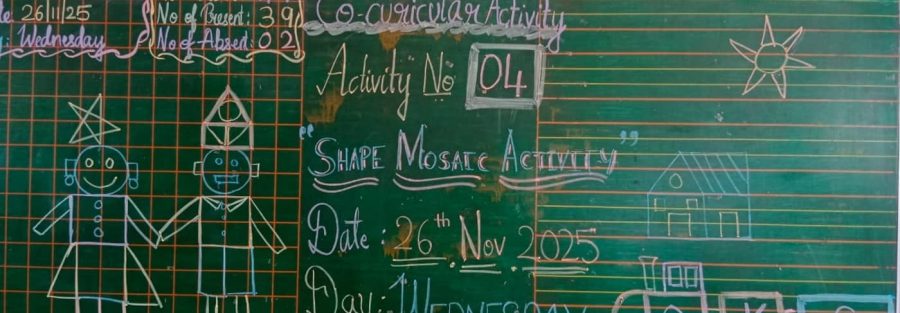 te 26/11/25
y: Wednesday
No of Present: 39
No of Absent: 02
Co-curicular Activity
Activity No 04
"SHAPE MOSAIC ACTIVITY"
Date : 26th Nov 2025
Day:- WEDNESDAY